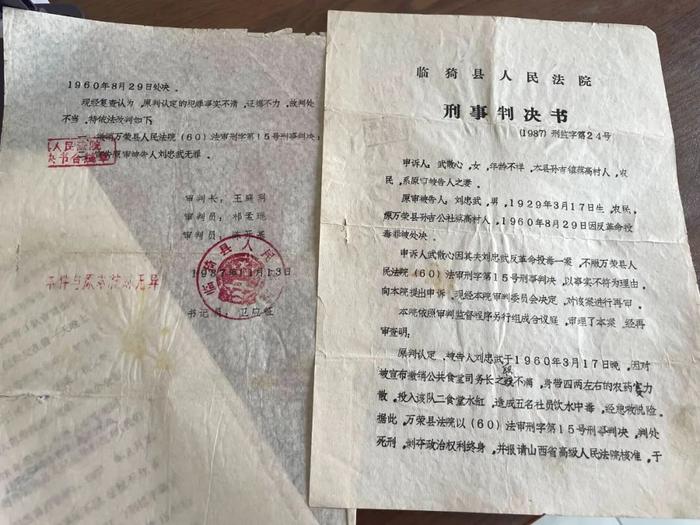 临猗县人民法院
刑事判决书
(1987)刑监字第24号
申诉人：武散心，女，年龄不详，本县孙吉镇蔡高村人，农
民，系原审被告人之妻。
原审被告人：刘忠武，男，1929年3月17日生，农民，
原万荣县孙吉公社蔡高村人，1960年8月29日因反革命投
毒罪被处决。
申诉人武散心因其夫刘忠武反革命投毒一案，不服万荣县人
民法院(60)法审刑字第15号刑事判决，以事实不符为理由，
向本院提出申诉，现经本院审判委员会决定，对该案进行再审。
本院依照审判监督程序另行组成合议庭，审理了本案，经再
审查明：
原判认定，被告人刘忠武于1960年3月17日晚，因对
被宣布撤销公共食堂司务长之 不满，身带四两左右的农药 力
散，投入该队二食堂水缸，造成五名社员饮水中毒，经急救脱险。
据此，万荣县法院以(60)法审刑字第15号刑事判决，判处
死刑，剥夺政治权利终身，并报请山西省高级人民法院核准，于
1960年8月29日处决。
现经复查认为，原判认定的犯罪事实不清，证据不力，故判处
不当，特依法改判如下：
一、撤销万荣县人民法院(60)法审刑字第15号刑事判决；
二、 告原审被告人刘忠武无罪。
县人民法院
审判长：王庭
审判员：祁孟
审判员：陈
临猗县人民
1987年11月13日
本件与原本核对无异
书记员：卫